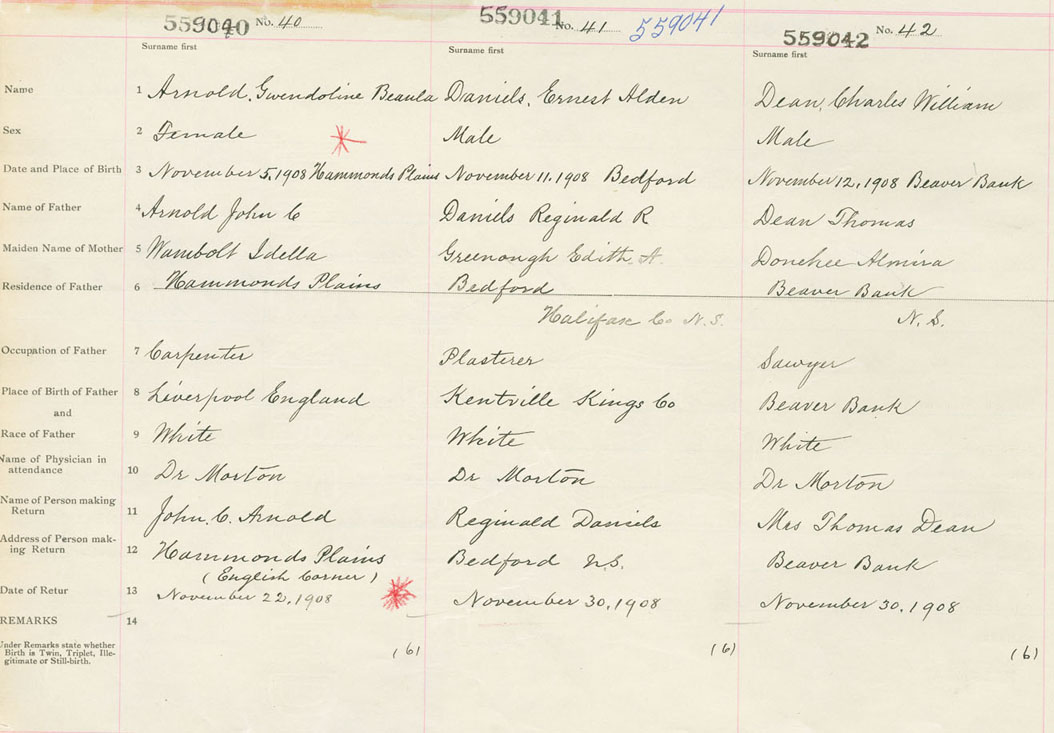 559040 No. 40 559041 No. 41 559041 559042 No. 42
Surname first Surname first Surname first
Name 1 Arnold, Gwendoline Beaula Daniels, Ernest Alden Dean, Charles William
Sex 2 Female Male Male
Date and Place of Birth 3 November 5, 1908 Hammonds Plains November 11, 1908 Bedford November 12, 1908 Beaver Bank
Name of Father 4 Arnold John C Daniels Reginald R Dean Thomas
Maiden Name of Mother 5 Wambolt Idella Greenough Edith A. Donehee Almira
Residence of Father 6 Hammonds Plains Bedford Beaver Bank
Halifax Co N.S. N.S.
Occupation of Father 7 Carpenter Plasterer Sawyer
Place of Birth of Father 8 Liverpool England Kentville Kings Co Beaver Bank
and
Race of Father 9 White White White
Name of Physician in
attendance 10 Dr Morton Dr Morton Dr Morton
Name of Person making
Return 11 John. C. Arnold Reginald Daniels Mrs Thomas Dean
Address of Person mak-
ing Return 12 Hammonds Plains Bedford N.S. Beaver Bank
(English Corner)
Date of Retur 13 November 22, 1908 November 30, 1908 November 30, 1908
REMARKS 14
Under Remarks state whether
Birth is Twin, Triplet, Ille-
gitimate or Still-birth.
(6) (6) (6)